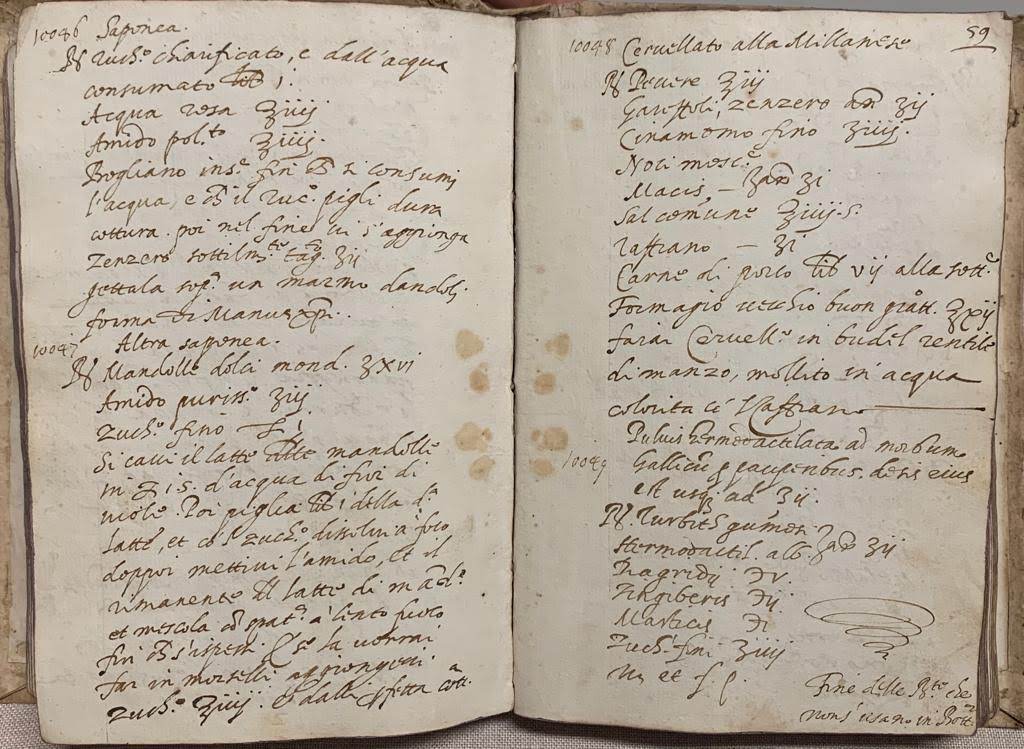 10046 Saponea.
℞ Zuchº. chiarificato, e dall'acqua
consumato lib j
Acqua rosa ℥iiij
Amido pol.to ℥iiij.
Bogliano ins.e fin ch si consumi
l'acqua, e ch il zucº. pigli dura
cottura. poi nel fine vi s'aggionga
Zenzero sottilm.te ℥ij
gettala sopª. un marmo dandoli
forma di Manus xp̃i.
10047 Altra saponea.
℞ Mandolle dolci mond. ℥xvi
Amido puriss.º ℥iij
Zuchº. fino
Si cavi il latte delle mandolle
in d'acqua di fior di
viole. Poi piglia lib j della d.ª
latte, et cō l'zuchº. dissolvi à foco
doppoi mettivi l'amido, et il
rimanente del latte di mãd.e
et mescola à lento fuoco
fin ch s'ispess. Se la vorrai
far in morselli aggiongevi
zuchº. ℥iiij. e dalli pfetta cott.ª
59
10048 Cervellato alla Millanese
℞ Pevere ℥iij
Garoffoli, zenzero añ ℥ij
Cinamomo fino ℥iiij.
Noci mosc.e
Macis, — añ ℥i
Sal comune ℥iiij.s.
Zaffrano — ℥i
Carne di porco lib vij alla sott.e
Formagio vecchio buon gratt. ℥xij
farai Cervell.º in budel zentile
di manzo, mollito in acqua
colorita cō Zaffrano
10049 Pulvis hermodactilata ad morbum
Gallicũ p pauperibus. dosis eius
est usq; ad ʒij.
℞ Turbith gumos.
Hermodactil. alb. añ ʒij
Diagridij ℈v.
Zingiberis ℈ij
Masticis ℈i
Zuch.i fini ℥iiij
m. et f. p.
Fine delle R.te che
non s'usano in Bott.ª